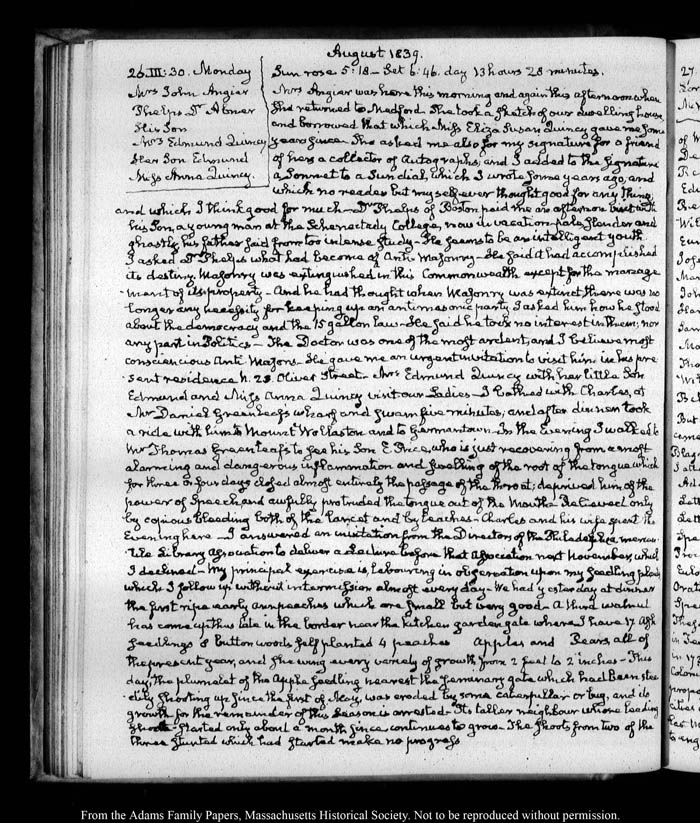 August 1839.
26. III: 30. Monday
Mrs John Angier
Phelps Dr Abner
His Son
Mrs Edmund Quincy
Her Son Edmund
Miss Anna Quincy.
Sun rose 5:18 — Set 6:46. day 13 hours 28 minutes.
Mrs Angier was here this morning and again this afternoon when
She returned to Medford. She took a sketch of our dwelling house,
and borrowed that which Miss Eliza Susan Quincy gave me some
years since. She asked me also for my signature for a friend
of hers a collector of Autographs, and I added to the signature
a Sonnet to a Sun dial, which I wrote some years ago, and
which no reader but myself ever thought good for any thing,
and which I think good for much — Dr Phelps of Boston paid me an afternoon visit with
his Son, a young man at the Schenectady College, now in vacation pale, slender and
ghastly, his father said from too intense study — He seems to be an intelligent youth.
I asked Dr Phelps what had become of Anti-Masonry — He said it had accomplished
its destiny. Masonry was extinguished in this Commonwealth except for the manage-
ment of its property — And he had thought when Masonry was extinct there was no
longer any necessity for keeping up an antimasonic party I asked him how he stood
about the democracy and the 15 gallon law — He said he took no interest in them; nor
any part in Politics — The Doctor was one of the most ardent, and I believe most
conscientious Anti Masons — He gave me an urgent invitation to visit him in his pre-
sent residence N. 23. Oliver Street — Mrs Edmund Quincy with her little Son
Edmund and Miss Anna Quincy visit our Ladies — I bathed with Charles, at
Mr Daniel Greenleaf's wharf and swam five minutes, and after dinner took
a ride with him to Mount Wollaston and to Germantown. In the Evening I walked to
Mr Thomas Greenleaf's to see his Son E. Price, who is just recovering from a most
alarming and dangerous inflammation and swelling of the root of the tongue which
for three or four days closed almost entirely the passage of the throat; deprived him of the
power of Speech and awfully protruded the tongue out of the Mouth — Relieved only
by copious bleeding both of the lancet and by leaches — Charles and his wife spent the
Evening here — I answered an invitation from the Directors of the Philadelphia mercan-
tile Library Association to deliver a lecture before that Association next November, which
I declined — My principal exercise is labouring in observation upon my seedling plants
which I follow up without intermission almost every day — We had yesterday at dinner
the first ripe early ann peaches which are small but very good — A third walnut
has come up thus late in the border near the kitchen garden gate where I have 17 Ash
seedlings 8 buttonwoods self planted 4 peaches Apples and Pears, all of
the present year, and shewing every variety of growth from 2 feet to 2 inches — This
day, the plumelet of the Apple seedling nearest the Seminary gate which had been stea-
dily shooting up since the first of May, was eroded by some caterpillar or bug, and its
growth for the remainder of this Season is arrested — Its taller neighbour whose leading
shoot started only about a month since, continues to grow — The shoots from two of the
three stunted which had started make no progress
From the Adams Family Papers, Massachusetts Historical Society. Not to be reproduced without permission.